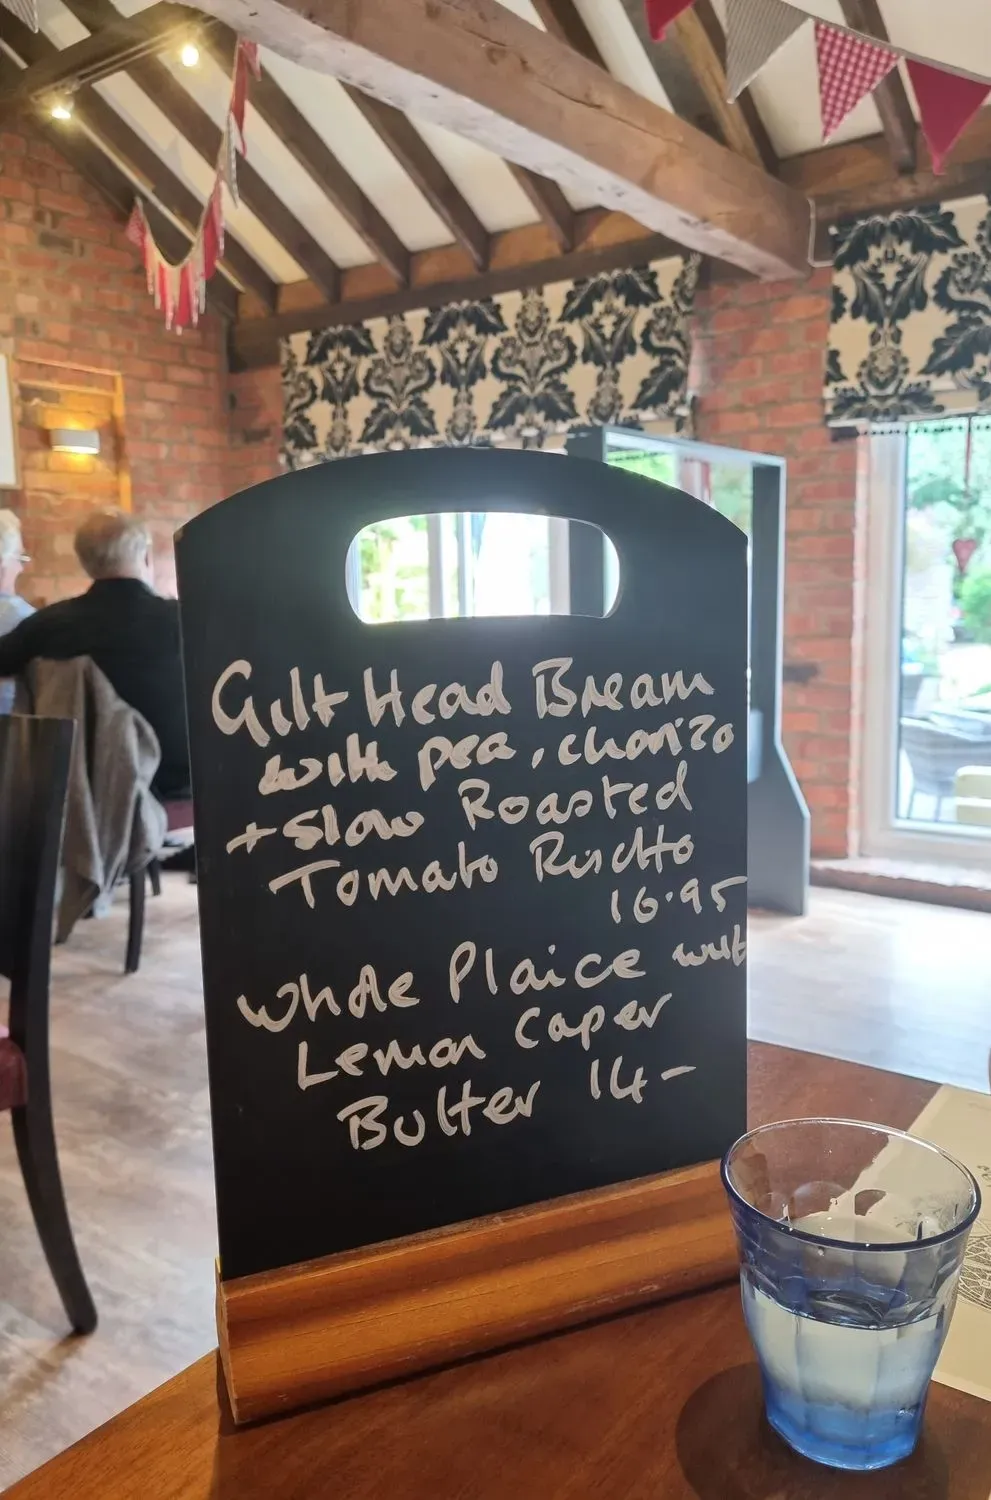 Gilt Head Bream
with pea, chorizo
+ Slow Roasted
Tomato Risotto
16.95
Whole Plaice with
Lemon Caper
Butter 14-